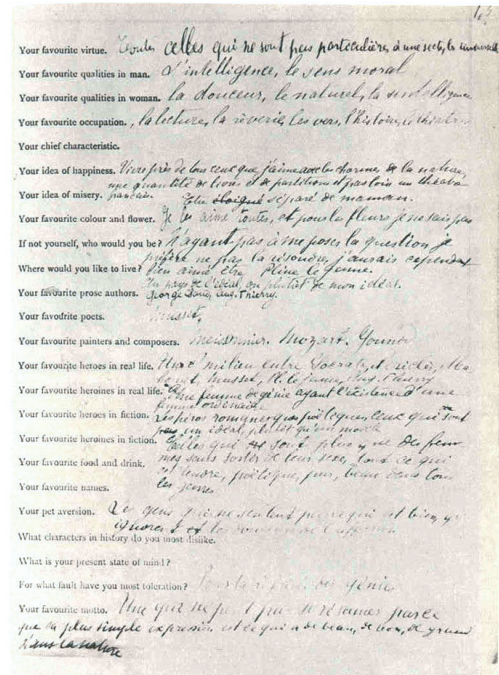 Your favourite virtue. Toutes celles qui ne sont pas particulières à une secte, les universelles
Your favourite qualities in man. L'intelligence, le sens moral
Your favourite qualities in woman. la douceur, le naturel, l'intelligence
Your favourite occupation. la lecture, la rêverie, les vers, l'histoire, le théâtre
Your chief characteristic.
Your idea of happiness. Vivre près de tous ceux que j'aime avec les charmes de la nature,
une quantité de livres et de partitions, et pas loin un théâtre
Your idea of misery. français. Etre éloigné séparé de maman.
Your favourite colour and flower. Je les aime toutes, et pour les fleurs je ne sais pas
If not yourself, who would you be? N'ayant pas à me poser la question je
préfère ne pas la résoudre, j'aurais cependant
Where would you like to live? bien aimé être Pline le Jeune.
Au pays de l'idéal, ou plutôt de mon idéal.
Your favourite prose authors. George Sand, Aug. Thierry.
Your favourite poets. Musset,
Your favourite painters and composers. Meissonnier, Mozart, Gounod
Your favourite heroes in real life. Un milieu entre Socrate, Périclès,
Musset, Pline le Jeune, Aug. Thierry
Your favourite heroines in real life. Une femme de génie ayant l'existence d'une
femme ordinaire
Your favourite heroes in fiction. Les héros romanesques poétiques, ceux qui sont
un idéal plutôt qu'un modèle
Your favourite heroines in fiction. Celles qui sont plus que des femmes
sans sortir de leur sexe, tout ce qui
Your favourite food and drink. est tendre, poétique, pur, beau dans tous
les genres
Your favourite names.
Your pet aversion. Les gens qui ne sentent pas ce qui est bien, qui
ignorent les
What characters in history do you most dislike.
What is your present state of mind?
For what fault have you most toleration? Pour la génie
Your favourite motto. Une qui ne peut pas se résumer parce
que sa plus simple expression est ce qui a de beau, de bon, de grand
dans la nature